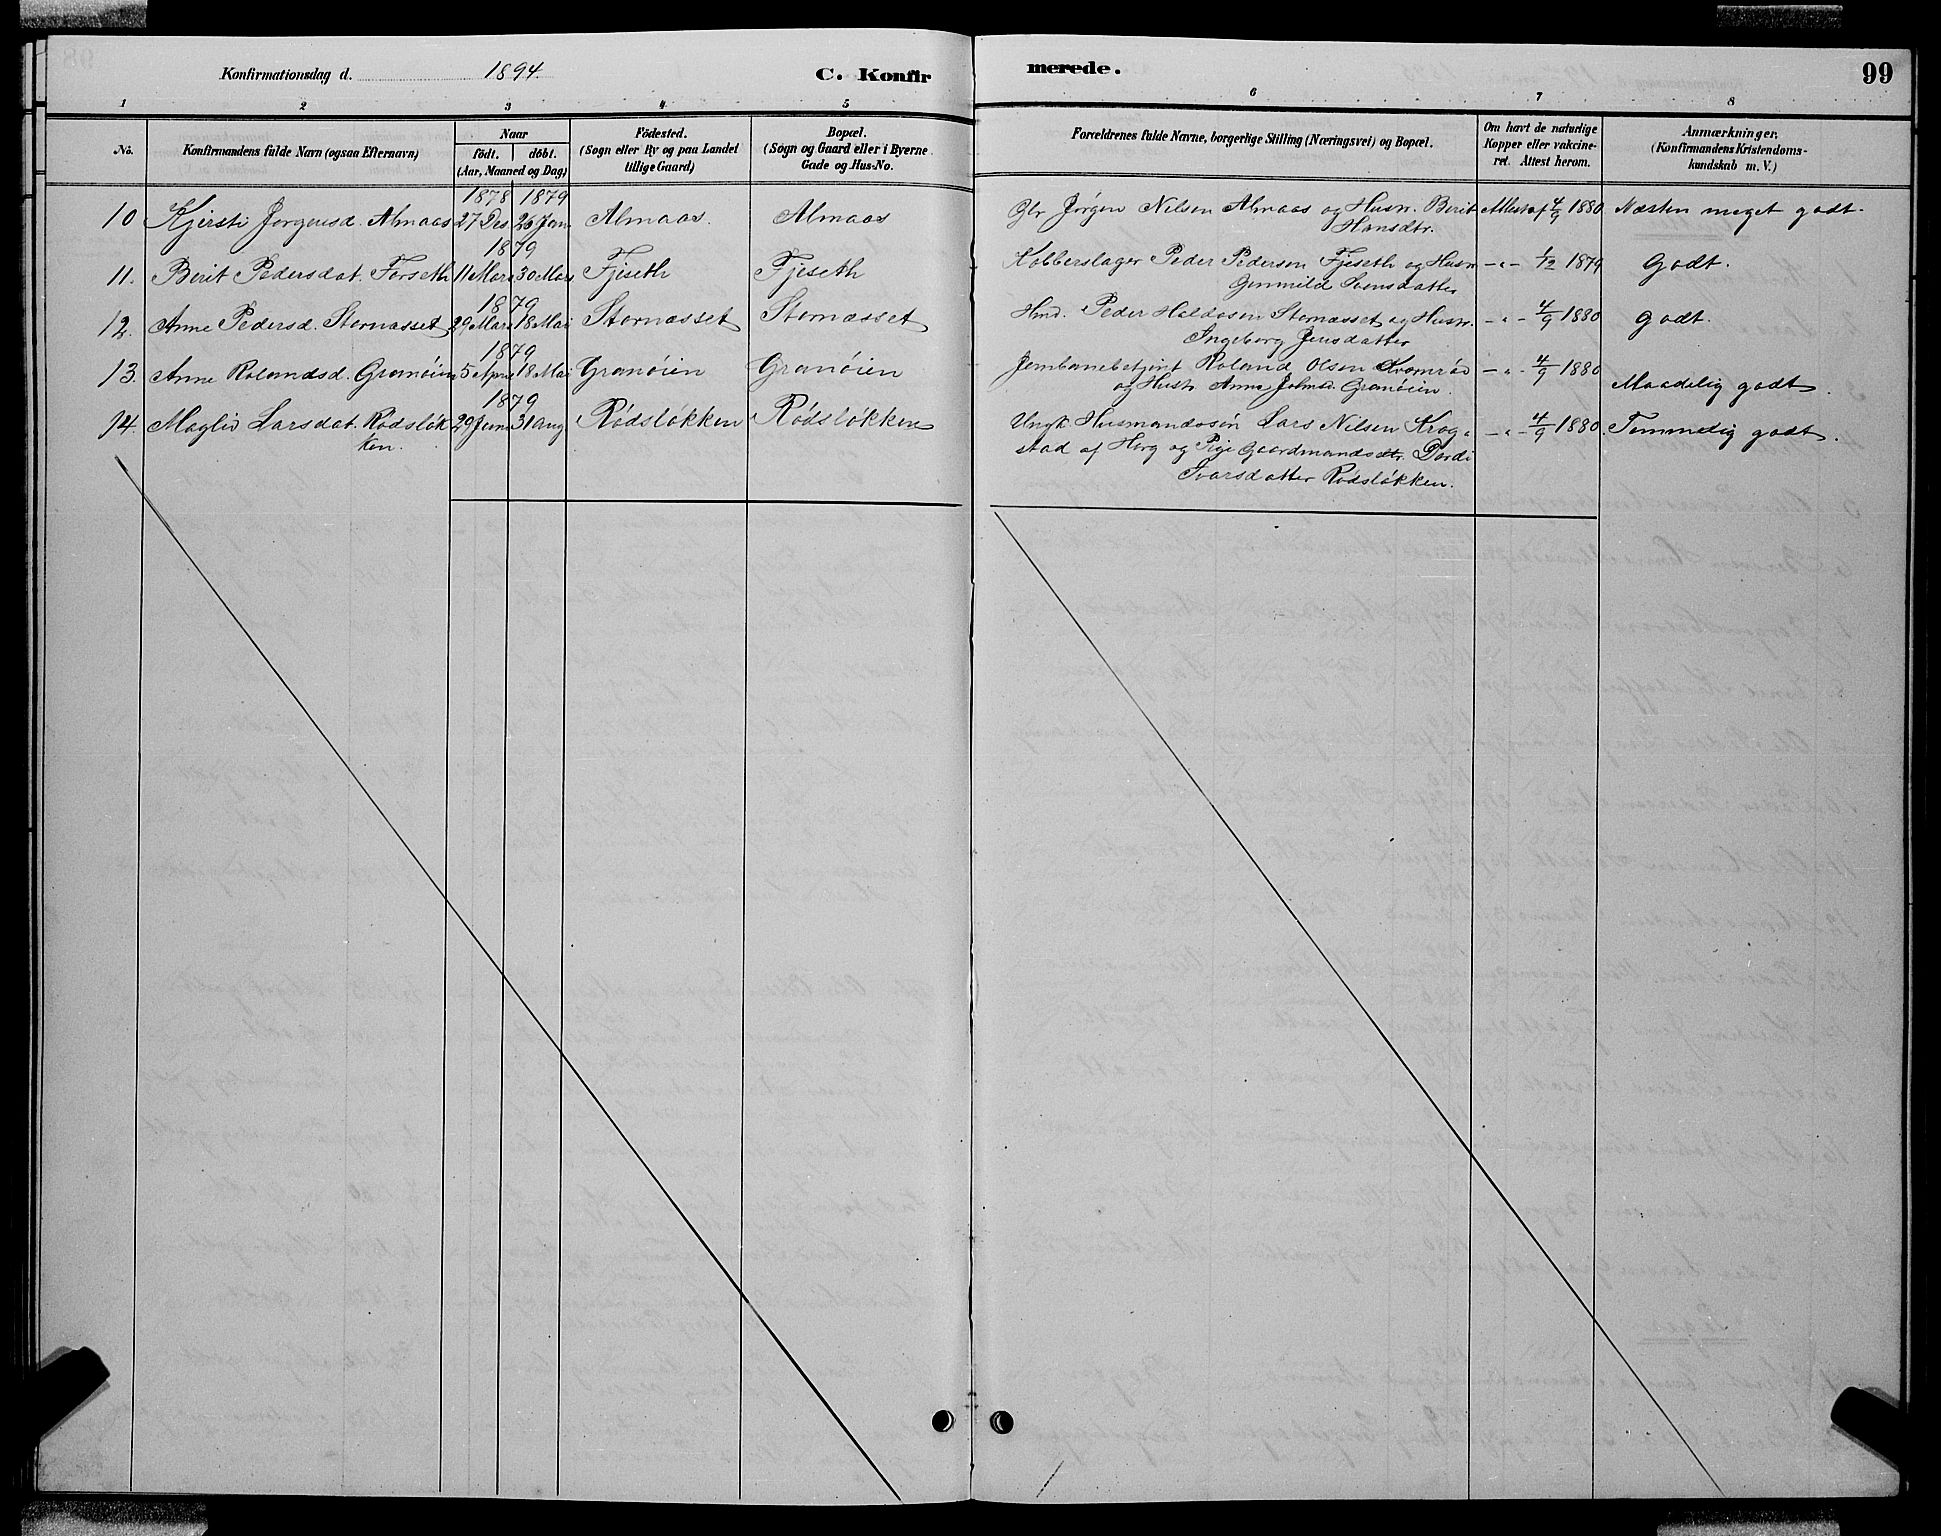 Konfirmationsdag d. 1894. C. Konfirmerede. 99
1 2 3 4 5 6 7 8
No. Konfirmandens fulde Navn (ogsaa Efternavn) Naar födt. döbt. (Aar, Maaned og Dag) Födested. (Sogn eller By og paa Landet tillige Gaard) Bopæl. (Sogn og Gaard eller i Byerne Gade og Hus-No. Forældrenes fulde Navne, borgerlige Stilling (Næringsvei) og Bopæl. Om havt de naturlige Kopper eller vakcineret. Attest herom. Anmærkninger, (Konfirmandens Kristendomskundskab m. V.)
1878 1879
10 Kjersti Jørgensd. Almaas 27 Des. 26 Jan. Almaas. Almaas Gbr Jørgen Nilsen Almaas og Hustr. Berit Attest af 4/9 1880 Næsten meget godt.
Hansdtr.
1879
11. Berit Pedersdat. Forseth 11 Mars 30 Mars Fjeseth Fjeseth Kobberslager Peder Pedersen Fjeseth og Hustr. — " — 1/12 1879 Godt.
Gunnild Svensdatter
1879
12. Anne Pedersd. Stornæsset 29 Mars 18 Mai Stornæsset Stornæsset Hmd. Peder Haldosen Stornæsset og Hustr. — " — 4/9 1880 Godt.
Ingeborg Jensdatter
1879
13. Anne Rolandsd. Granöien 5 April 18 Mai Granöien Granöien Jernbanebetjent Roland Olsen — " — 4/9 1880
og Hustr Anne Johnsd. Granöien. Maadelig godt.
1879
14. Magli Larsdat. Rødsløk- 29 Juni 31 Aug Rødsløkken Rødsløkken Ungk. Husmandssøn Lars Nilsen Krog- — " — 4/9 1880. Temmelig godt.
ken. stad af Horg og Pige Gaardmandsdtr. Dordi
Ivarsdatter Rødsløkken.